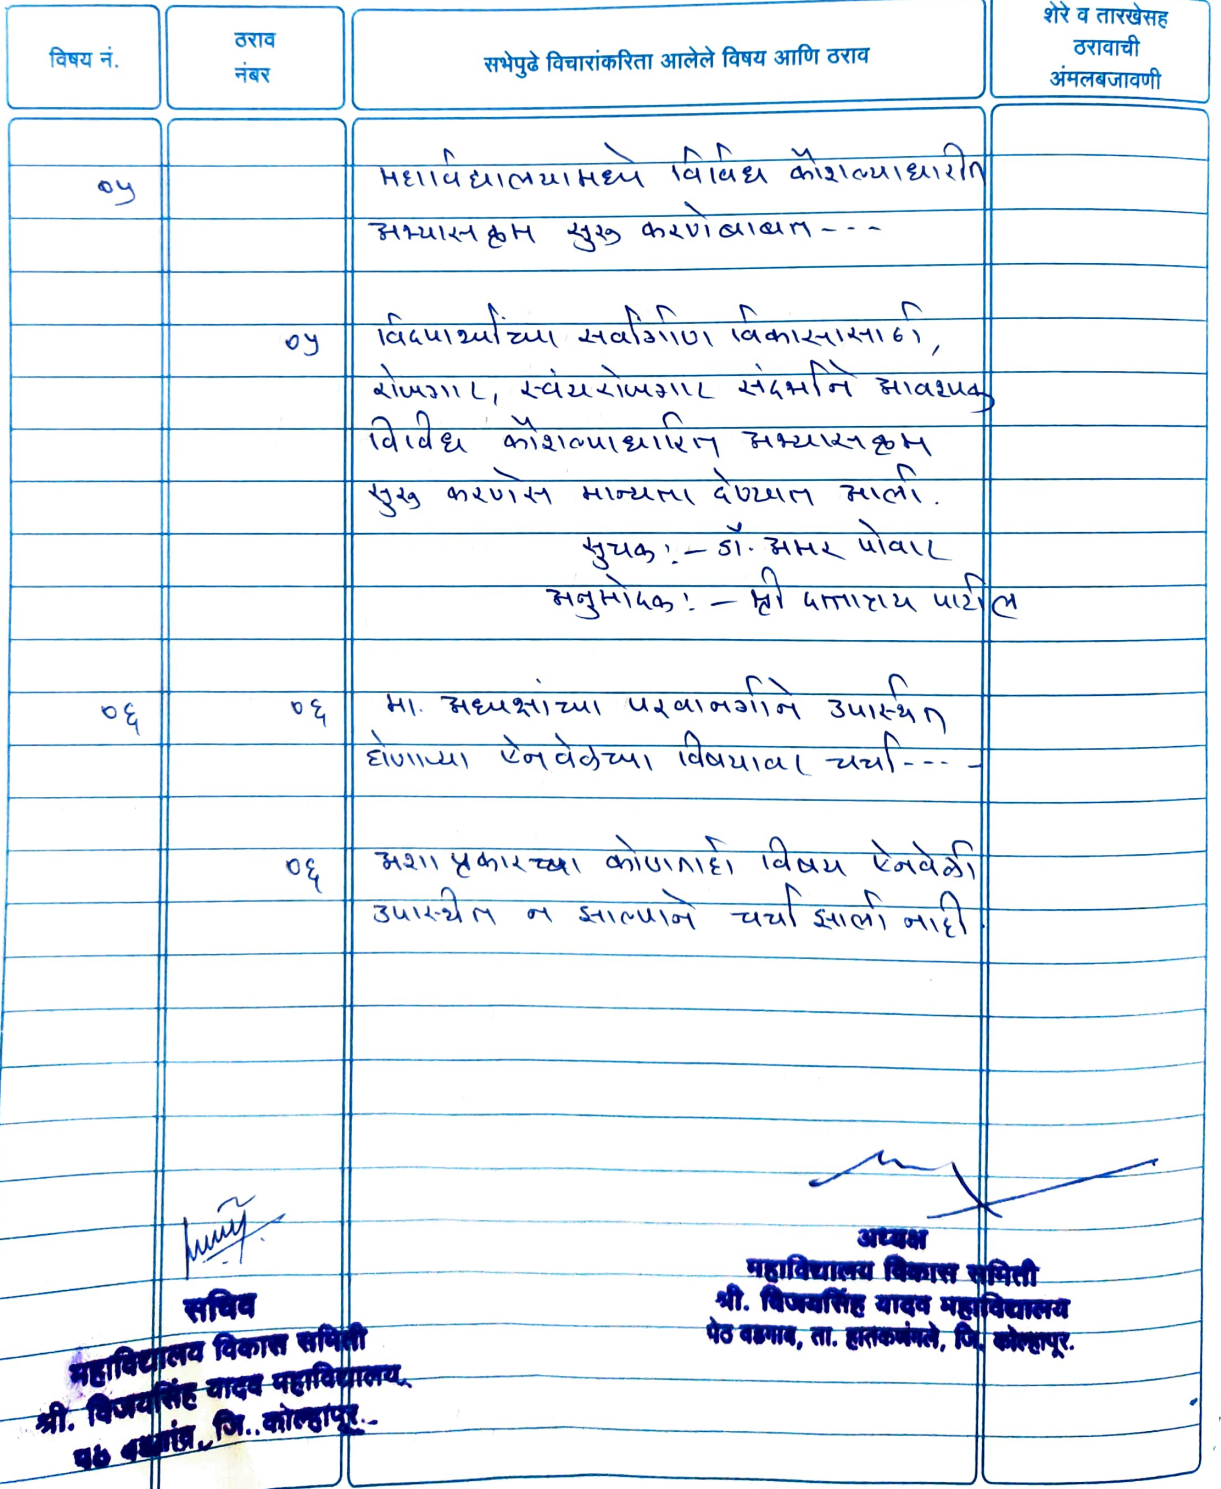 विषय नं.
ठराव
नंबर
सभेपुढे विचारांकरिता आलेले विषय आणि ठराव
शेरे व तारखेसह
ठरावाची
अंमलबजावणी
०५ महाविद्यालयामध्ये विविध कौशल्याधारीत
अभ्यासक्रम सुरु करणेबाबत - - -
०५ विद्यार्थ्यांच्या सर्वांगीण विकासासाठी,
रोजगार, स्वंयरोजगार संदर्भाने आवश्यक
विविध कौशल्याधारित अभ्यासक्रम
सुरु करणेस मान्यता देण्यात आली.
सुचक :- डॉ. अमर पोवार
अनुमोदक :- श्री दत्तात्रय पाटील
०६ ०६ मा. अध्यक्षांच्या परवानगीने उपस्थित
होणाऱ्या ऐनवेळच्या विषयावर चर्चा - - - -
०६ अशा प्रकारच्या कोणताही विषय ऐनवेळी
उपस्थित न झाल्याने चर्चा झाली नाही.
अध्यक्ष
महाविद्यालय विकास समिती
श्री. विजयसिंह यादव महाविद्यालय
पेठ वडगाव, ता. हातकणंगले, जि. कोल्हापूर.
सचिव
महाविद्यालय विकास समिती
श्री. विजयसिंह यादव महाविद्यालय
जि. कोल्हापूर.